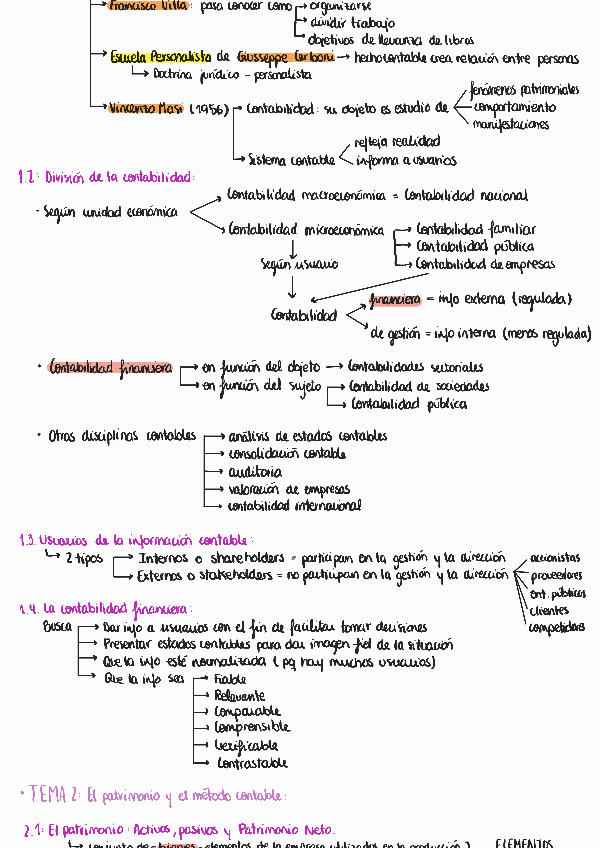 Francisco Villa: pasa conocer como → organizarse
→ dividir trabajo
→ objetivos de llevanza de libros
Escuela Personalista de Giusseppe Cerboni → hecho contable crea relación entre personas
→ Doctrina jurídico - personalista
Vincenzo Masi (1956) → Contabilidad: su objeto es estudio de
fenómenos patrimoniales
comportamiento
manifestaciones
→ Sistema contable
refleja realidad
informa a usuarios
1.2: División de la contabilidad:
- Según unidad económica
Contabilidad macroeconómica = Contabilidad nacional
Contabilidad microeconómica → Contabilidad familiar
→ Contabilidad pública
→ Contabilidad de empresas
Según usuario
Contabilidad
financiera = info externa (regulada)
de gestión = info interna (menos regulada)
• Contabilidad financiera → en función del objeto → Contabilidades sectoriales
→ en función del sujeto → Contabilidad de sociedades
→ Contabilidad pública
• Otras disciplinas contables → análisis de estados contables
→ consolidación contable
→ auditoría
→ valoración de empresas
→ contabilidad internacional
1.3. Usuarios de la información contable:
→ 2 tipos → Internos o shareholders = participan en la gestión y la dirección
→ Externos o stakeholders = no participan en la gestión y la dirección
accionistas
proveedores
ent. públicos
clientes
competidors
1.4. La contabilidad financiera:
Busca → Dar info a usuarios con el fin de facilitar tomar decisiones
→ Presentar estados contables para dar imagen fiel de la situación
→ Que la info esté normalizada (pq hay muchos usuarios)
→ Que la info sea → Fiable
→ Relevante
→ Comparable
→ Comprensible
→ Verificable
→ Contrastable
• TEMA 2: El patrimonio y el método contable:
2.1: El patrimonio: Activos, pasivos y Patrimonio Neto.
→ conjunto de bienes - elementos de la empresa utilizados en la producción
ELEMENTOS